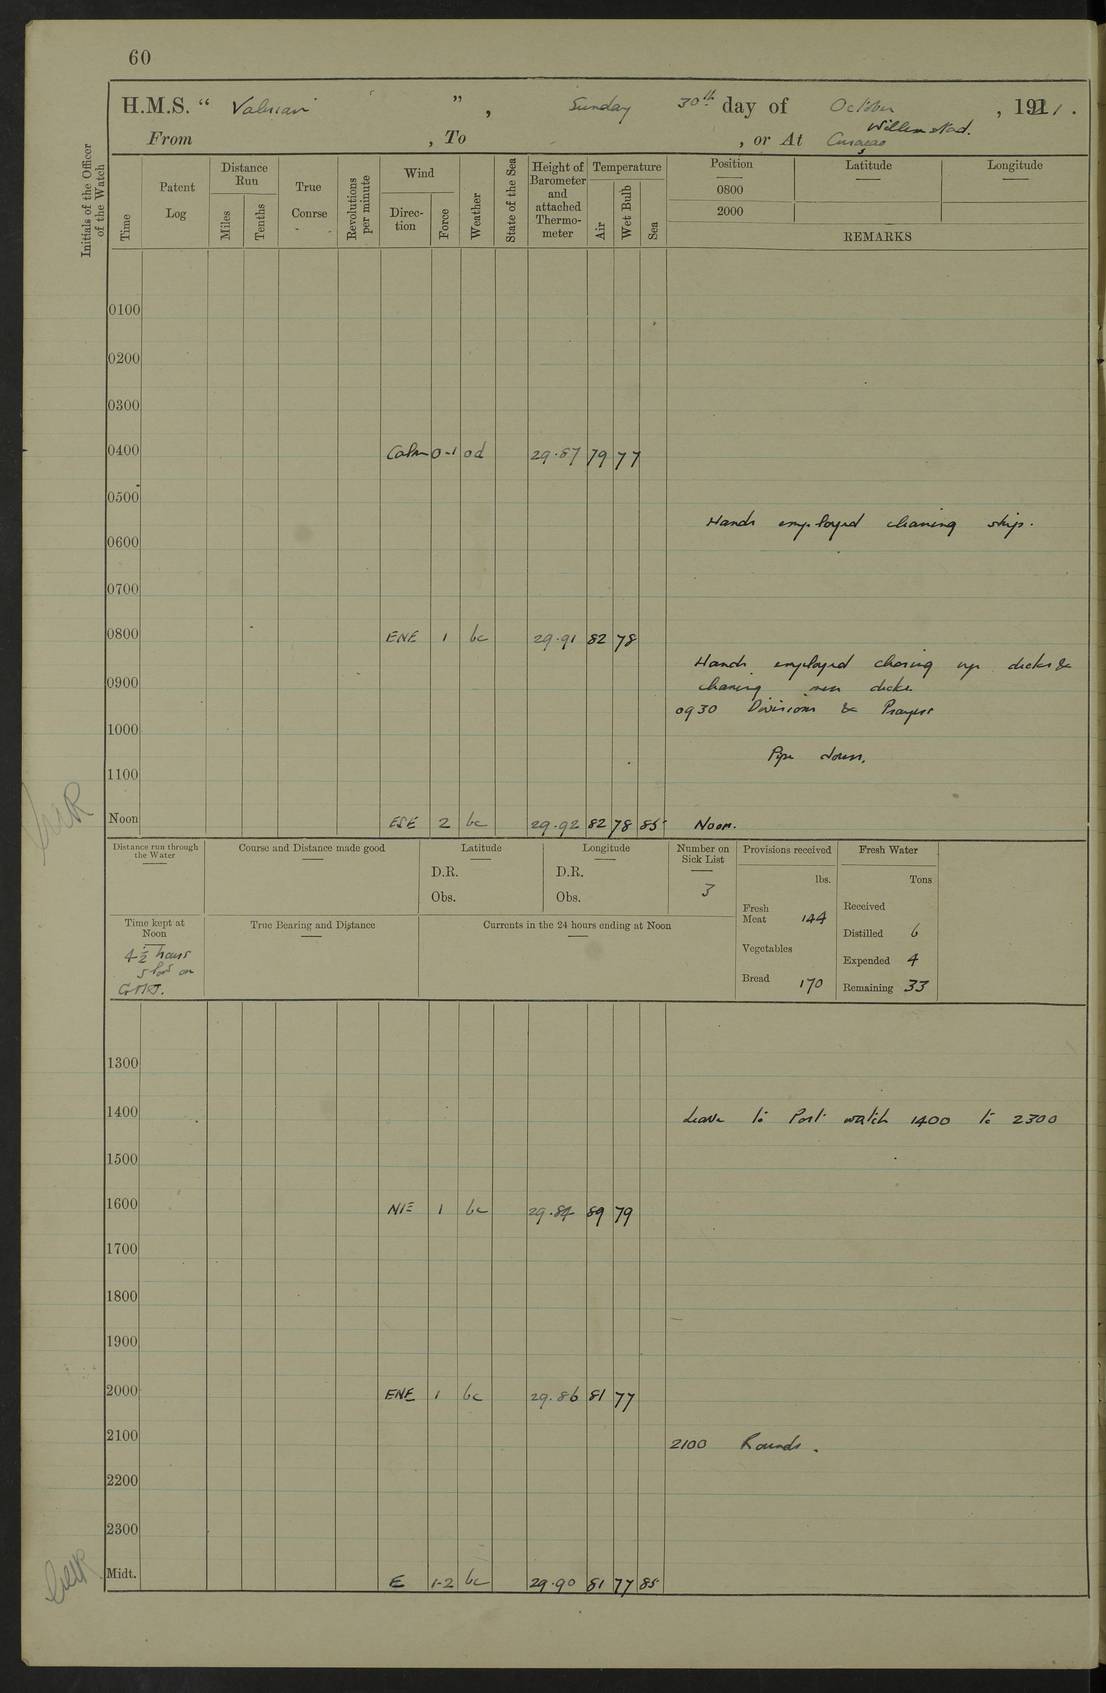 60
H.M.S. “ Valerian ” , Sunday 30th day of October , 1921 .
Willemstad.
From , To , or At Curaçao
Initials of the Officer of the Watch
Time
Patent Log
Distance Run
Miles
Tenths
True Course
Revolutions per minute
Wind
Direc-tion
Force
Weather
State of the Sea
Height of Barometer and attached Thermo-meter
Temperature
Air
Wet Bulb
Sea
Position Latitude Longitude
0800
2000
REMARKS
0100
0200
0300
0400 Calm 0-1 od 29.87 79 77
0500
Hands employed cleaning ship.
0600
0700
0800 ENE 1 bc 29.91 82 78
Hands employed clearing up decks &
0900 cleaning mess decks.
0930 Divisions & Prayers
1000
Pipe down.
1100
Noon ESE 2 bc 29.92 82 78 85 Noon.
Distance run through the Water
Course and Distance made good
Latitude
D.R.
Obs.
Longitude
D.R.
Obs.
Number on Sick List
3
Provisions received
lbs.
Fresh Meat 144
Vegetables
Bread 170
Fresh Water
Tons
Received
Distilled 6
Expended 4
Remaining 33
Time kept at Noon
4½ hours
slow on
G.M.T.
True Bearing and Distance
Currents in the 24 hours ending at Noon
1300
1400 Leave to Port watch 1400 to 2300
1500
1600 NE 1 bc 29.84 89 79
1700
1800
1900
2000 ENE 1 bc 29.86 81 77
2100 2100 Rounds.
2200
2300
Midt. E 1-2 bc 29.90 81 77 85